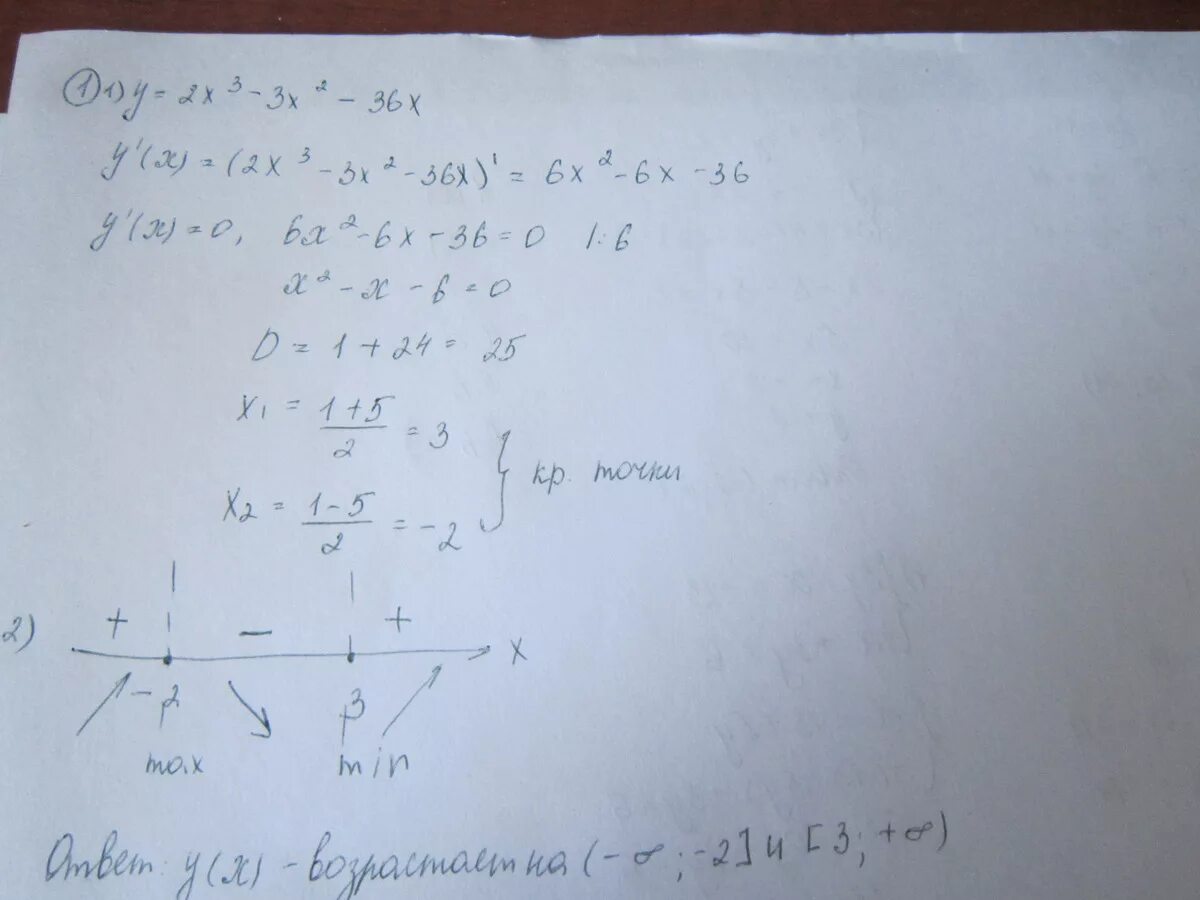 ① 1) y = 2x³ - 3x² - 36x
y'(x) = (2x³ - 3x² - 36x)' = 6x² - 6x - 36
y'(x) = 0, 6x² - 6x - 36 = 0 |: 6
x² - x - 6 = 0
D = 1 + 24 = 25
x₁ = (1+5)/2 = 3
x₂ = (1-5)/2 = -2
} кр. точки
2) + - + x
-2 3
max min
Ответ: y(x) - возрастает на (-∞; -2] и [3; +∞)